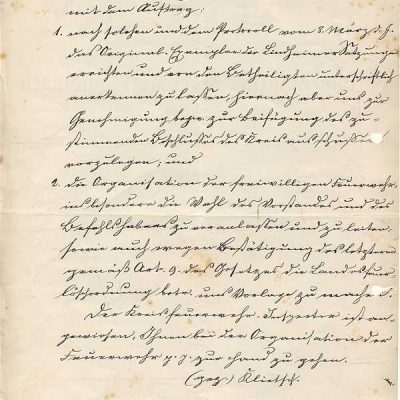 mit dem Auftrag:
1. nach solchen und dem Protocoll vom 8. März d. J.
das Original-Exemplar der Lindheimer Satzungen
errichten und von den Betheiligten unterschriftlich
anerkennen zu lassen, hiernach aber uns zur
Genehmigung bezw. zur Beifügung des zu-
stimmenden Beschlusses des Kreisausschusses
vorzulegen; und
2. die Organisation der freiwilligen Feuerwehr,
insbesondere die Wahl des Vorstandes und des
Befehlshabers zu veranlassen und zu leiten,
sowie auch wegen Bestätigung des letzteren
gemäß Art. 9. des Gesetzes die Landesfeuer-
löschordnung betr. uns Vorlage zu machen.
Der Kreisfeuerwehr-Inspector ist an-
gewiesen, Ihnen bei der Organisation der
Feuerwehr p. p. zur Hand zu gehen.
(gez.) Klietsch.